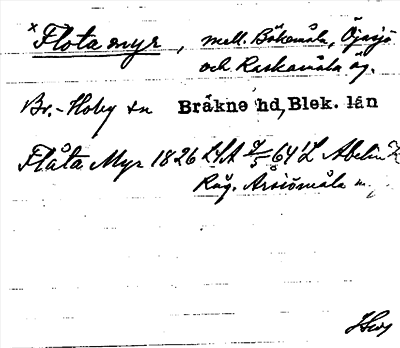 x Flotamyr, mell. Bökemåla, Öjasjö
och Raskamåla äg.
Br.-Hoby sn Bräkne hd, Blek. län
Flåta Myr 1826 LSA 7/5 64' L Abelin
Råg. Årsiömåla